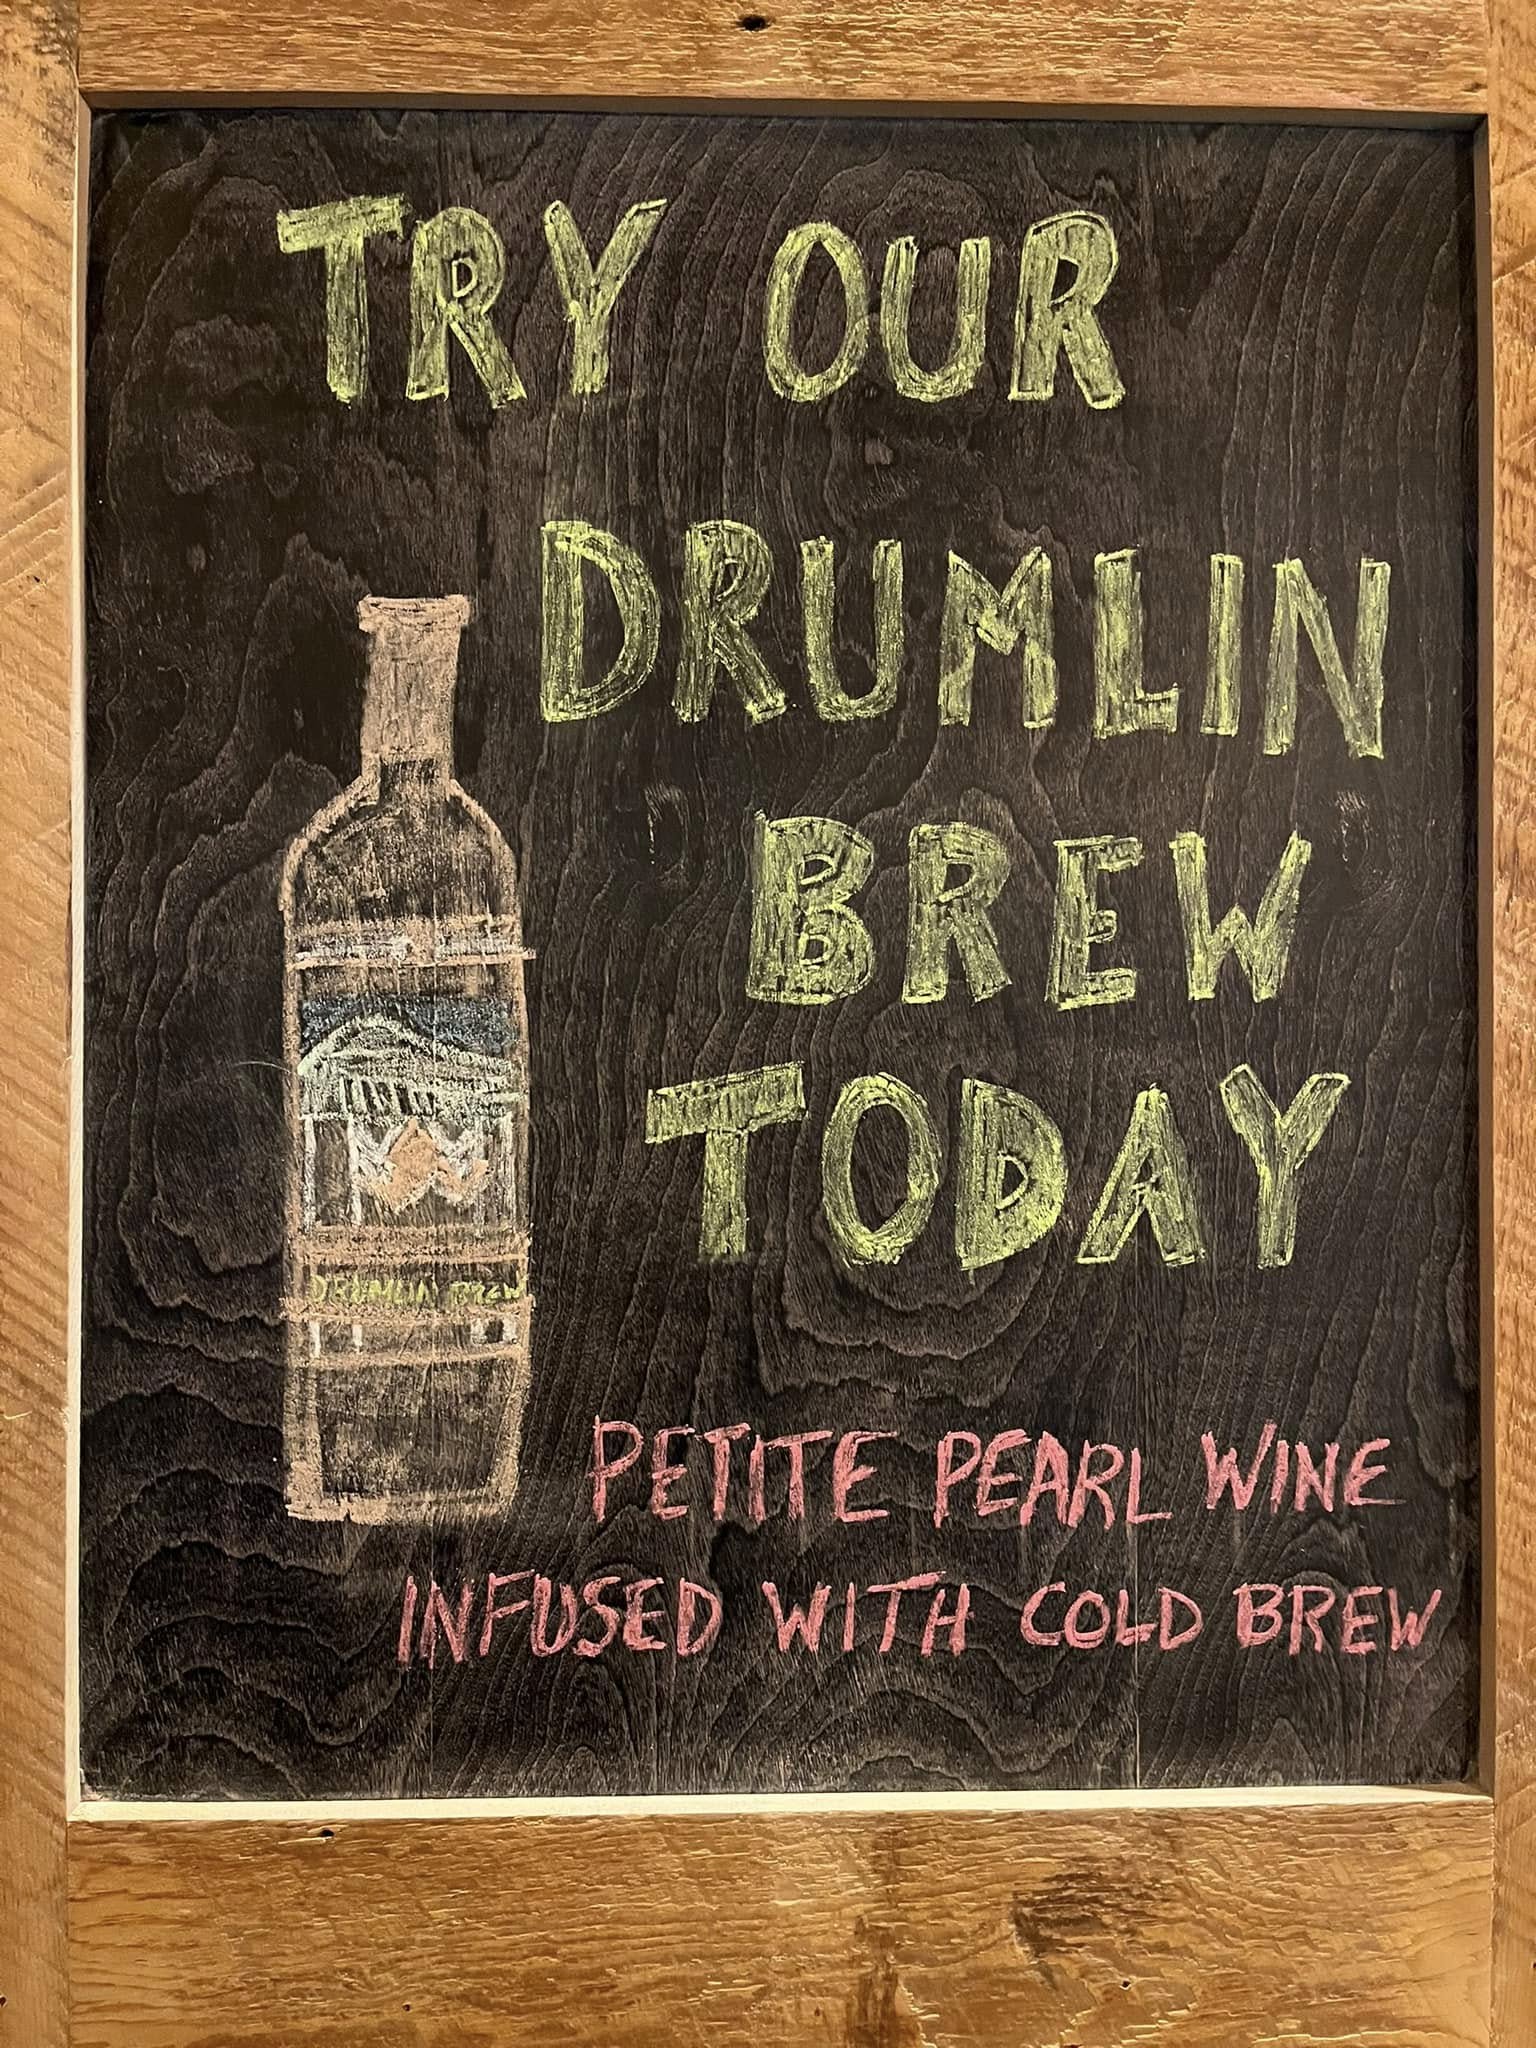 TRY OUR
DRUMLIN
BREW
TODAY
DRUMLIN BREW
PETITE PEARL WINE
INFUSED WITH COLD BREW